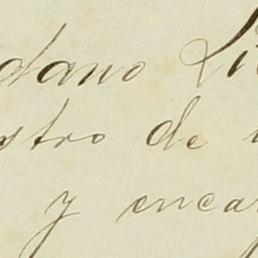 dano Li
stro de
y encar